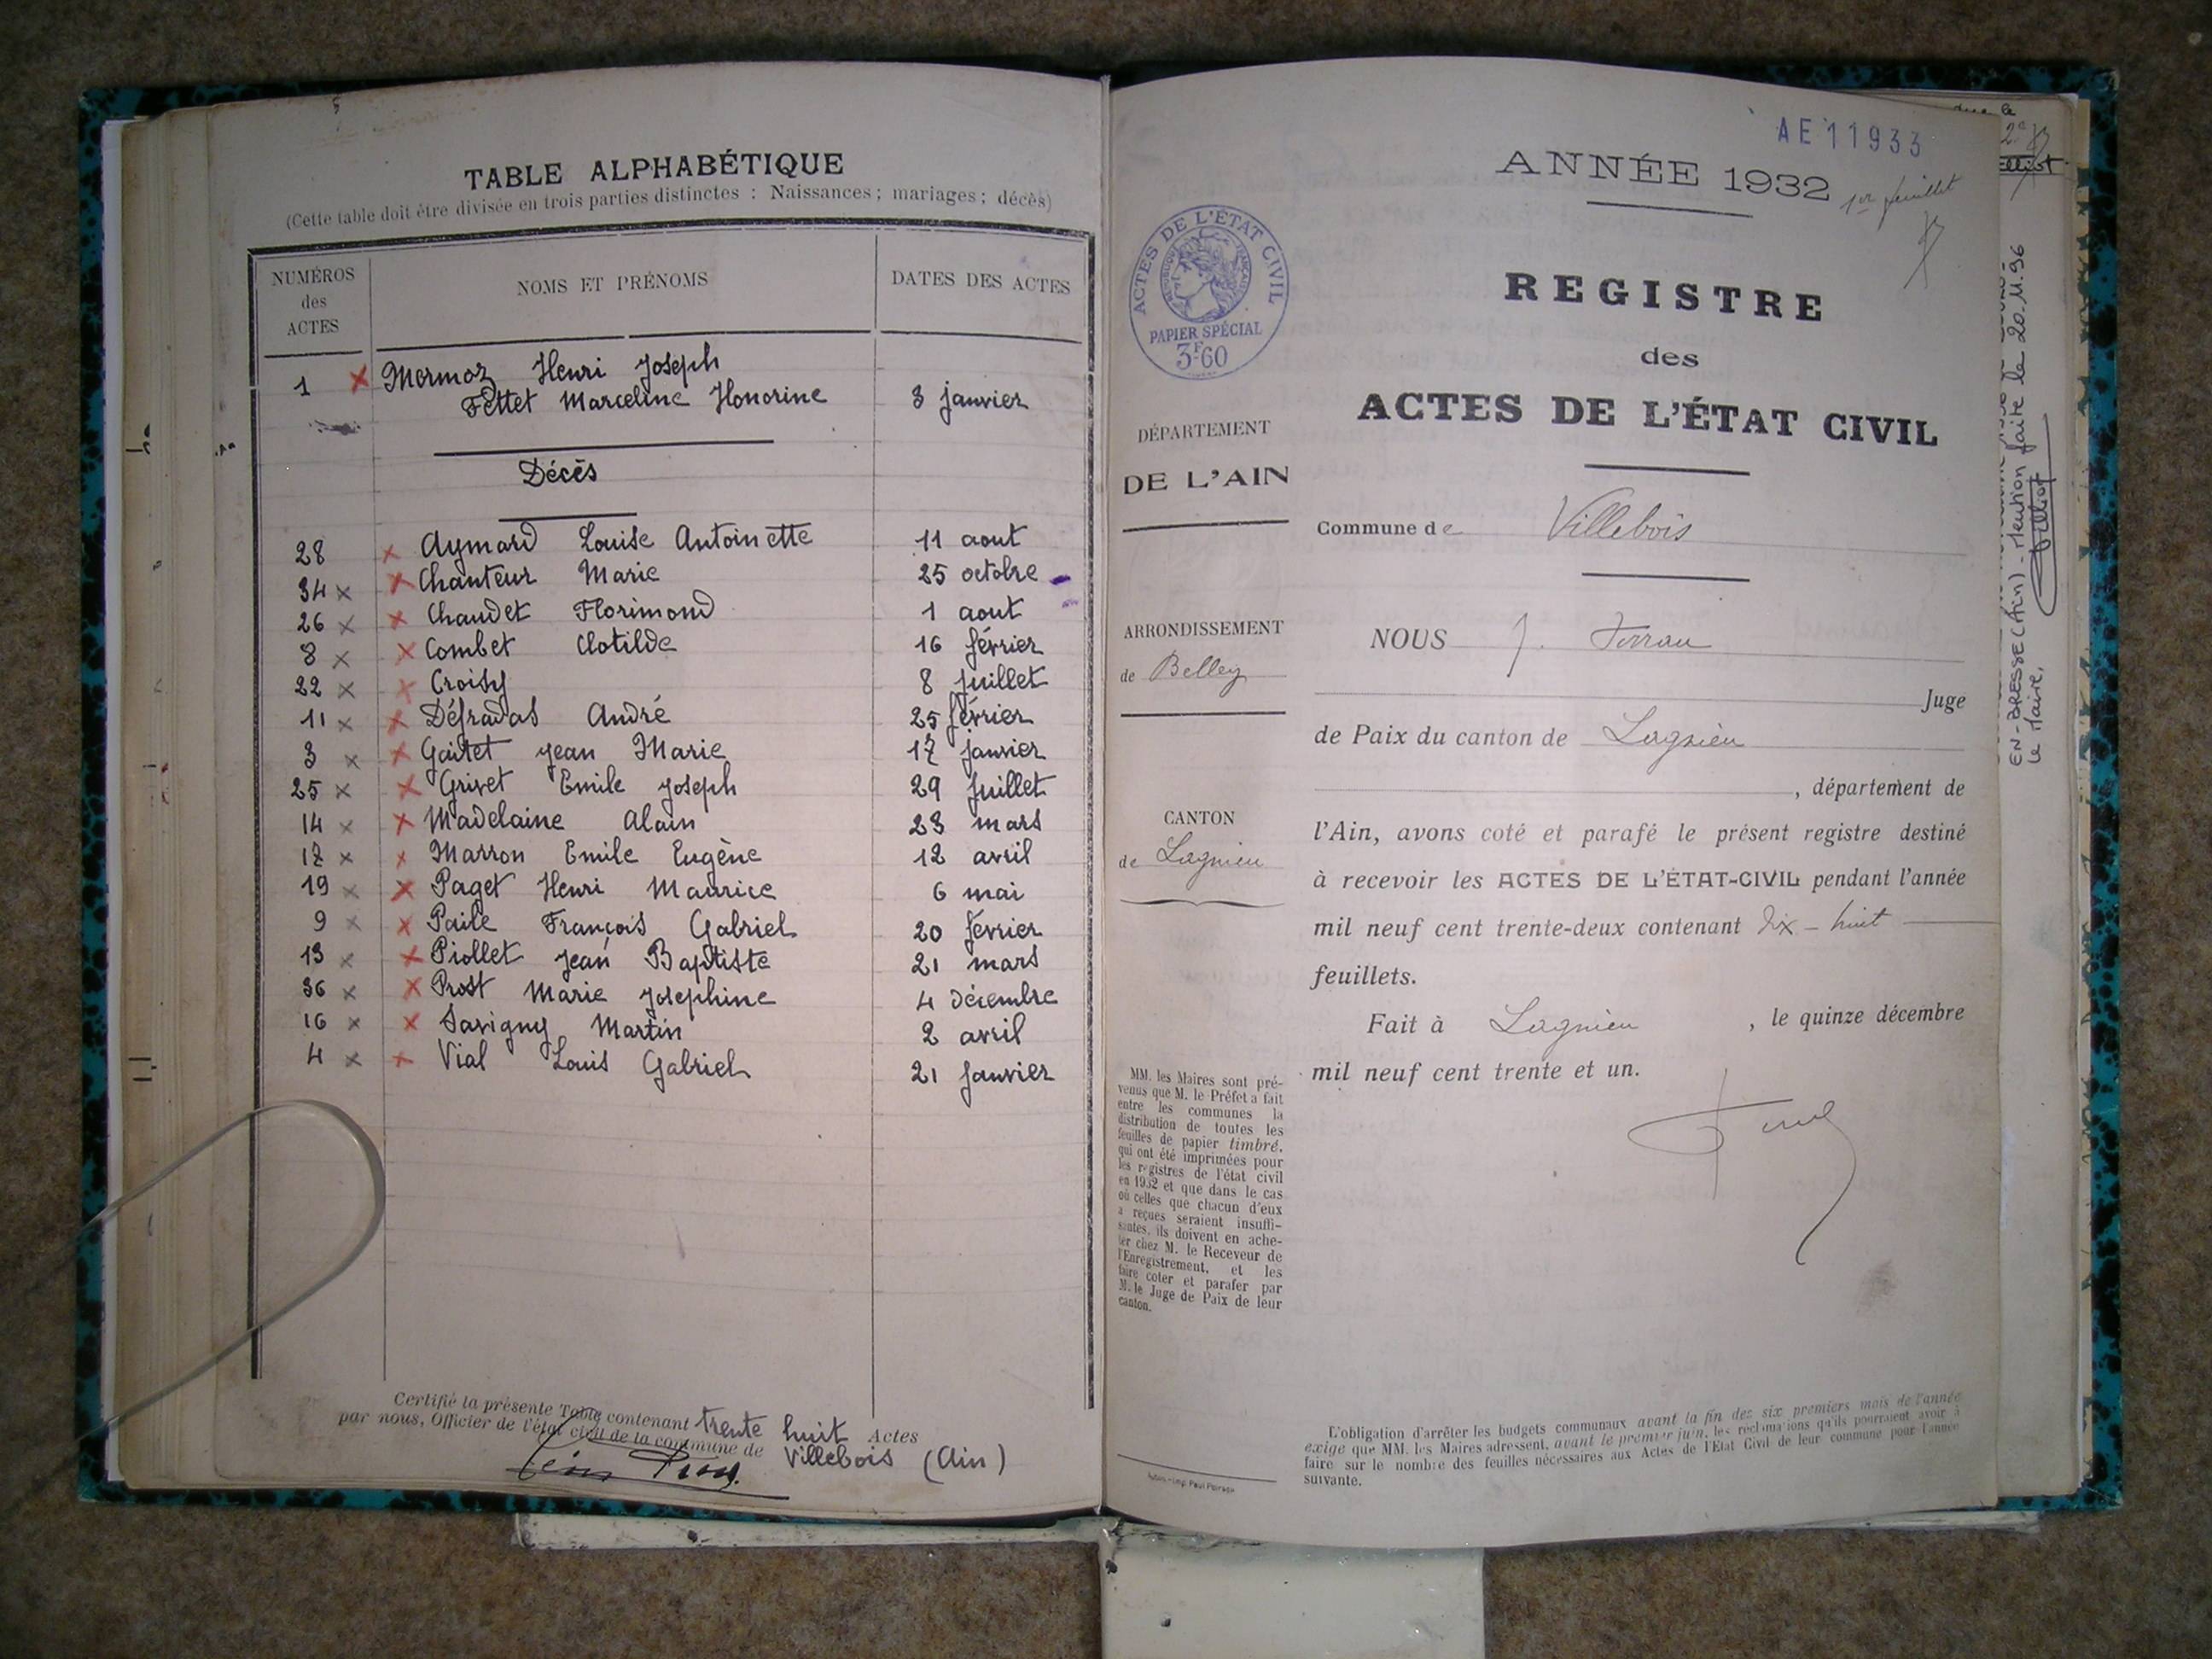 TABLE ALPHABÉTIQUE
(Cette table doit être divisée en trois parties distinctes : Naissances ; mariages ; décès)
NUMÉROS des ACTES NOMS ET PRÉNOMS DATES DES ACTES
1 Mermoz Henri Joseph
Fettet Marceline Honorine 3 janvier
Décès
28 Aymard Louise Antoinette 11 aout
34 Chanteur Marie 25 octobre
26 Chaudet Florimond 1 aout
8 Combet Clotilde 16 février
22 Croisy 8 juillet
11 Défradas André 25 février
3 Gaitet Jean Marie 17 janvier
25 Grivet Emile Joseph 29 juillet
14 Madelaine Alain 23 mars
17 Marron Emile Eugène 12 avril
19 Paget Henri Maurice 6 mai
9 Paile François Gabriel 20 février
13 Piollet Jean Baptiste 21 mars
36 Prost Marie Josephine 4 décembre
16 Savigny Martin 2 avril
4 Vial Louis Gabriel 21 janvier
Certifié la présente Table contenant trente huit Actes
par nous, Officier de l'état civil de la commune de Villebois (Ain)
AE 11933
ANNÉE 1932
1er feuillet
ACTES DE L'ÉTAT CIVIL
PAPIER SPÉCIAL
3F60
REGISTRE
des
ACTES DE L'ÉTAT CIVIL
DÉPARTEMENT
DE L'AIN
ARRONDISSEMENT
de Belley
CANTON
de Lagnieu
MM. les Maires sont pré-
venus que M. le Préfet a fait
entre les communes la
distribution de toutes les
feuilles de papier timbré,
qui ont été imprimées pour
les registres de l'état civil
en 1932 et que dans le cas
où celles que chacun d'eux
a reçues seraient insuffi-
santes, ils doivent en ache-
ter chez M. le Receveur de
l'Enregistrement, et les
faire coter et parafer par
M. le Juge de Paix de leur
canton.
Commune de Villebois
NOUS J.
Juge
de Paix du canton de Lagnieu
, département de
l'Ain, avons coté et parafé le présent registre destiné
à recevoir les ACTES DE L'ÉTAT-CIVIL pendant l'année
mil neuf cent trente-deux contenant Dix-huit
feuillets.
Fait à Lagnieu, le quinze décembre
mil neuf cent trente et un.
L'obligation d'arrêter les budgets communaux avant la fin des six premiers mois de l'année
exige que MM. les Maires adressent, avant le premier juin, les réclamations qu'ils pourraient avoir à
faire sur le nombre des feuilles nécessaires aux Actes de l'Etat Civil de leur commune pour l'année
suivante.
EN-BRESSE (Ain) - Mention faite le 20.11.96
Le Maire,